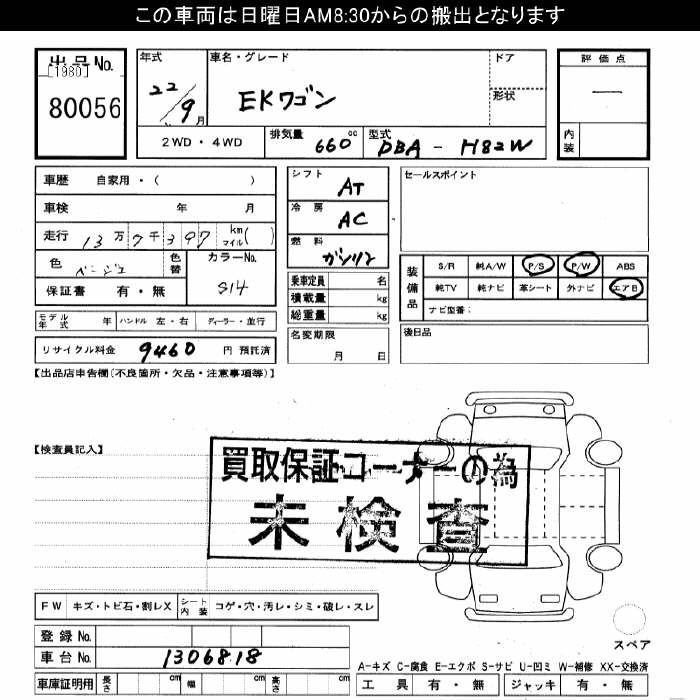 この車両は日曜日AM8:30からの搬出となります
出品No.
[1980]
80056
年式
22/9月
車名・グレード
EKワゴン
ドア
形状
評価点
―
内装
2WD・4WD
排気量 660cc
型式 DBA-H82W
車歴 自家用・( )
車検 年 月
走行 13万7千397 km マイル( )
色 ベージュ 色替
カラーNo. S14
保証書 有・無
シフト AT
冷房 AC
燃料 ガソリン
乗車定員 名
積載量 kg
総重量 kg
セールスポイント
装備品
S/R 純A/W P/S P/W ABS
純TV 純ナビ 革シート 外ナビ エアB
ナビ型番:
モデル年式 年 ハンドル 左・右 ディーラー・並行
名変期限 月 日
後日品
リサイクル料金 9460 円 預託済
【出品店申告欄(不良箇所・欠品・注意事項等)】
【検査員記入】
買取保証コーナーの為
未検査
FW キズ・トビ石・割レX シート内装 コゲ・穴・汚レ・シミ・破レ・スレ
スペア
登録No.
車台No. 1306818
A-キズ C-腐食 E-エクボ S-サビ U-凹ミ W-補修 XX-交換済
車庫証明用 長さ cm 幅 cm 高さ cm
工具 有・無 ジャッキ 有・無